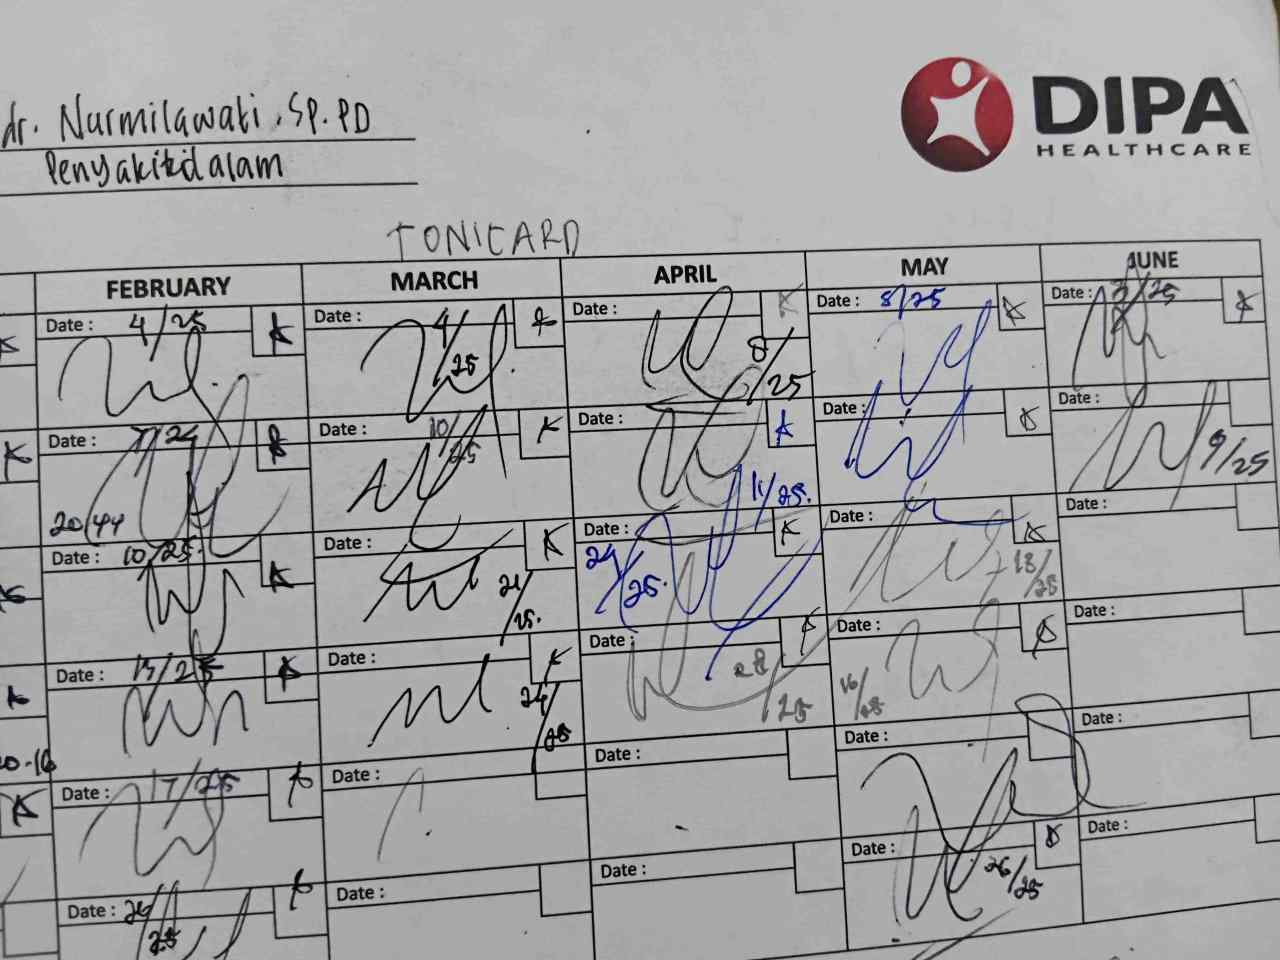 dr. Nurmilawati . SP. PD
Penyakitdalam
DIPA
HEALTHCARE
TONICARD
FEBRUARY MARCH APRIL MAY JUNE
Date : 4/25 Date : 4/25 Date : 8/25 Date : 8/25 Date :
Date : Date : 10/25 Date : 11/25. Date : Date : 9/25
20/44
Date : 10/25. Date : Date : 24/25. Date : 13/25 Date :
Date : 13/25 Date : 24/25 Date : 28/25 Date : 16/25 Date :
Date : 17/25 Date : Date : Date : Date :
Date : 26/25 Date : Date : Date : 26/25 Date :